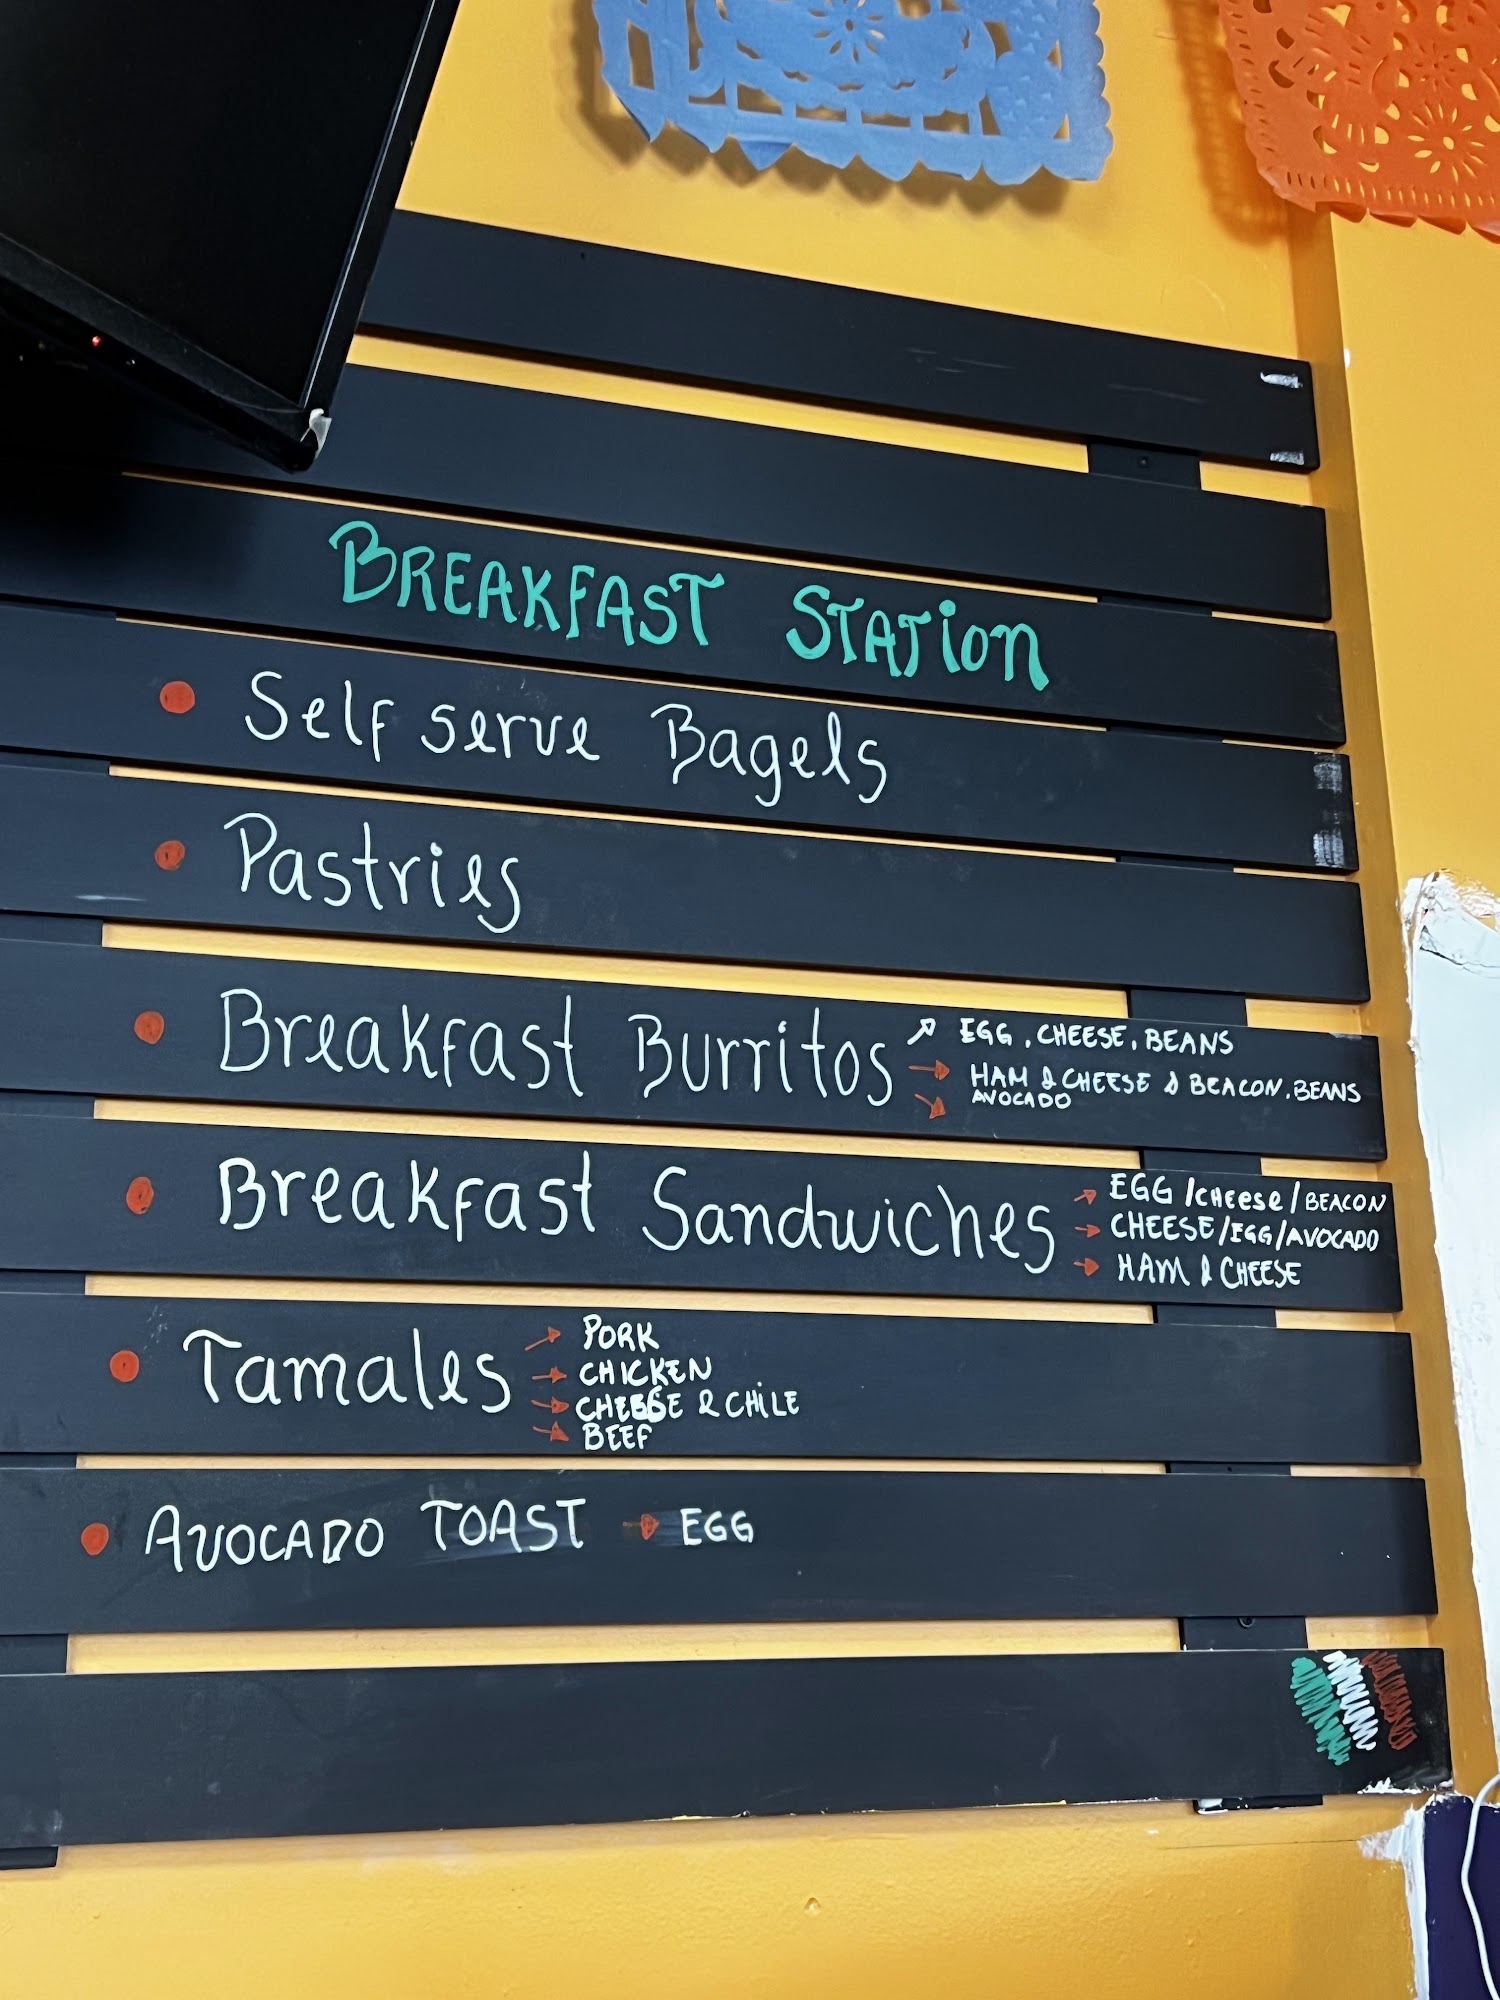 BREAKFAST STATION
Self serve Bagels
Pastries
Breakfast Burritos
EGG, CHEESE, BEANS
HAM & CHEESE & BEACON, BEANS
AVOCADO
Breakfast Sandwiches
EGG/CHEESE/BEACON
CHEESE/EGG/AVOCADO
HAM & CHEESE
Tamales
PORK
CHICKEN
CHEESE & CHILE
BEEF
AVOCADO TOAST → EGG